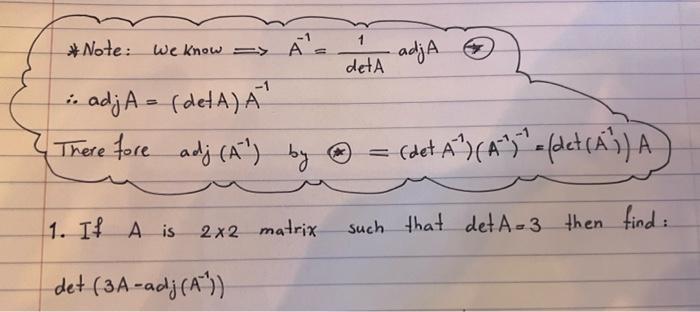 *Note: We know ⟹ A⁻¹ = 1/detA adjA ⊛
∴ adjA = (detA) A⁻¹
There fore adj(A⁻¹) by ⊛ = (det A⁻¹)(A⁻¹)⁻¹ = (det(A⁻¹)) A
1. If A is 2x2 matrix such that detA=3 then find:
det (3A-adj(A⁻¹))